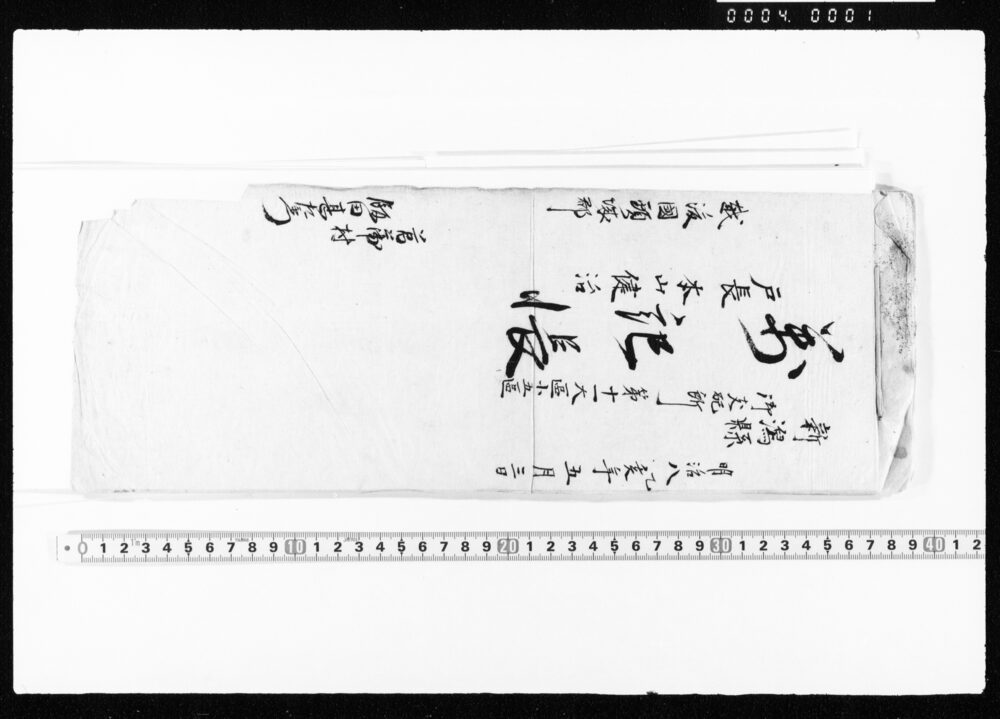 0004. 0001
明治八乙亥年五月三日
新潟縣
御支配所 第十一大區小五區
萬記帳
戸長 本山健治
越後國頸城郡
菖蒲村
飯田甚
0 1 2 3 4 5 6 7 8 9 10 1 2 3 4 5 6 7 8 9 20 1 2 3 4 5 6 7 8 9 30 1 2 3 4 5 6 7 8 9 40 1 2